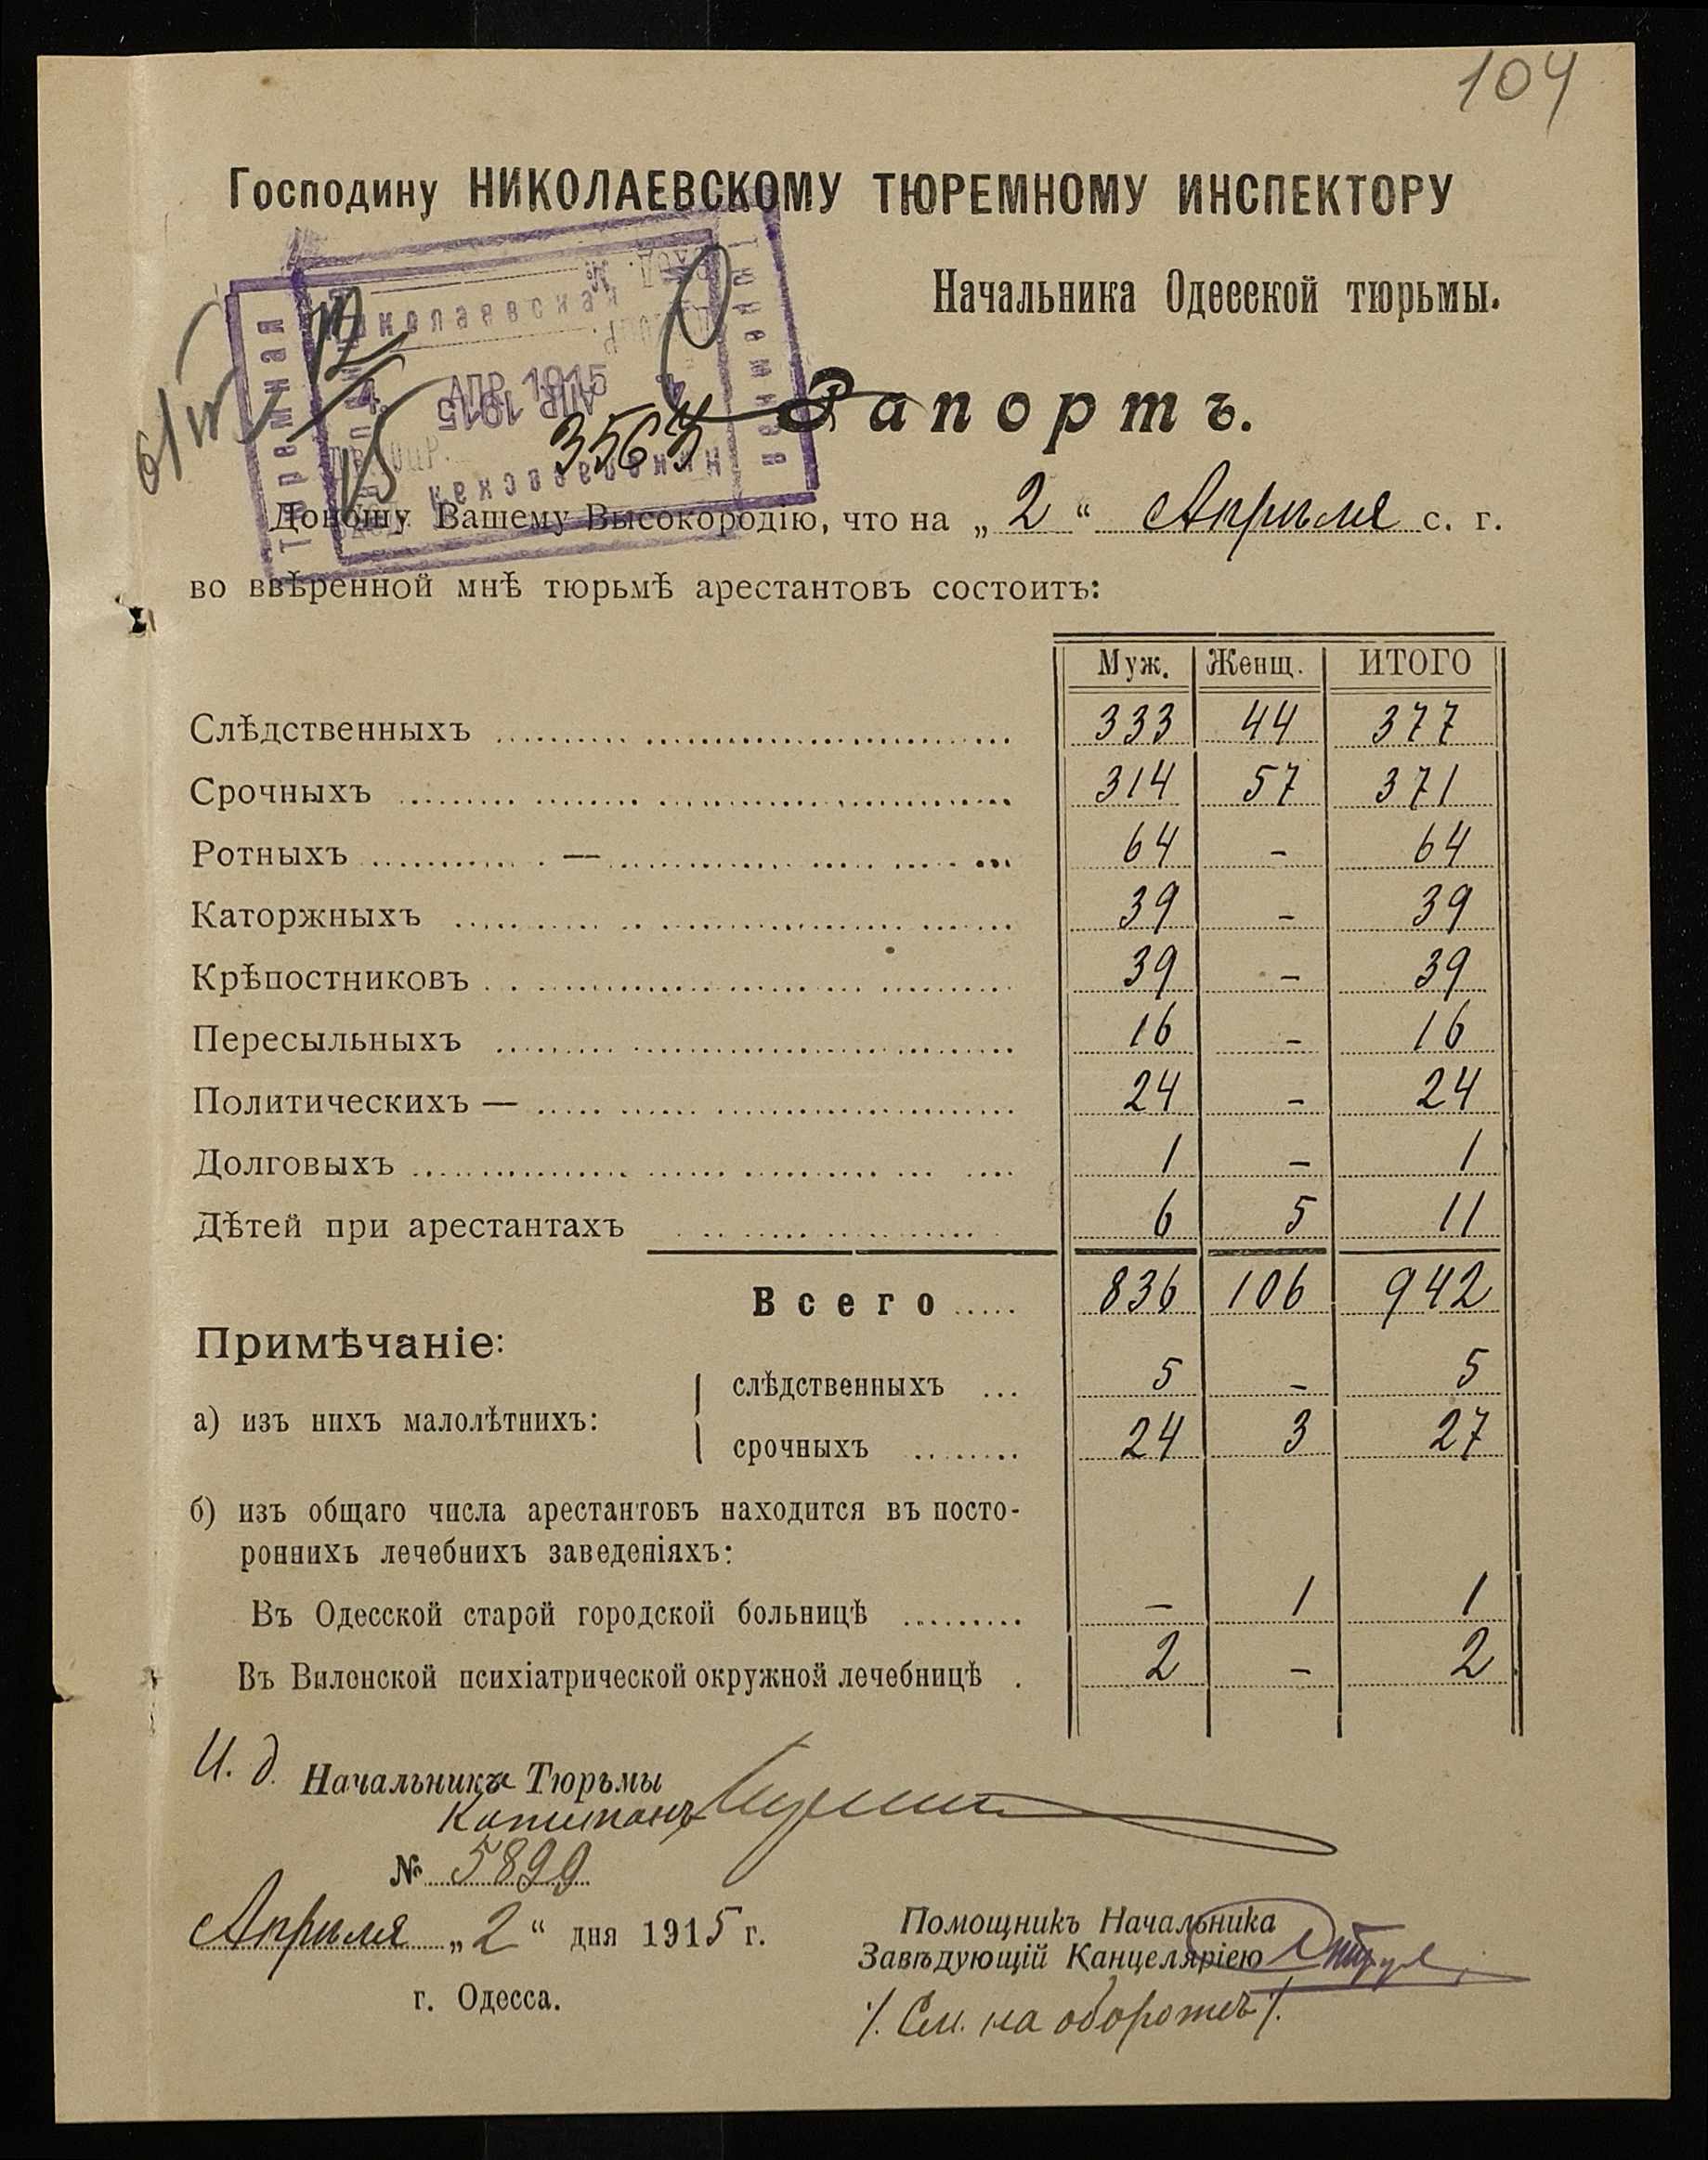 104
Господину НИКОЛАЕВСКОМУ ТЮРЕМНОМУ ИНСПЕКТОРУ
Начальника Одесской тюрьмы.
Николаевская
Тюремная
4 АПР 1915
3564
Рапортъ.
Доношу Вашему Высокородію, что на „2“ Апрѣля с. г.
во ввѣренной мнѣ тюрьмѣ арестантовъ состоитъ:
Муж. Женщ. ИТОГО
Слѣдственныхъ 333 44 377
Срочныхъ 314 57 371
Ротныхъ — 64 - 64
Каторжныхъ 39 - 39
Крѣпостниковъ 39 - 39
Пересыльныхъ 16 - 16
Политическихъ — 24 - 24
Долговыхъ 1 - 1
Дѣтей при арестантахъ 6 5 11
Всего 836 106 942
Примѣчаніе:
а) изъ нихъ малолѣтнихъ:
слѣдственныхъ 5 - 5
срочныхъ 24 3 27
б) изъ общаго числа арестантовъ находится въ посто-
роннихъ лечебнихъ заведеніяхъ:
Въ Одесской старой городской больницѣ - 1 1
Въ Виленской психіатрической окружной лечебницѣ 2 - 2
И. д. Начальника Тюрьмы
Капитанъ
№ 5899
Апрѣля „2“ дня 1915 г.
г. Одесса.
Помощникъ Начальника
Завѣдующій Канцеляріею
./. См. на оборотѣ ./.